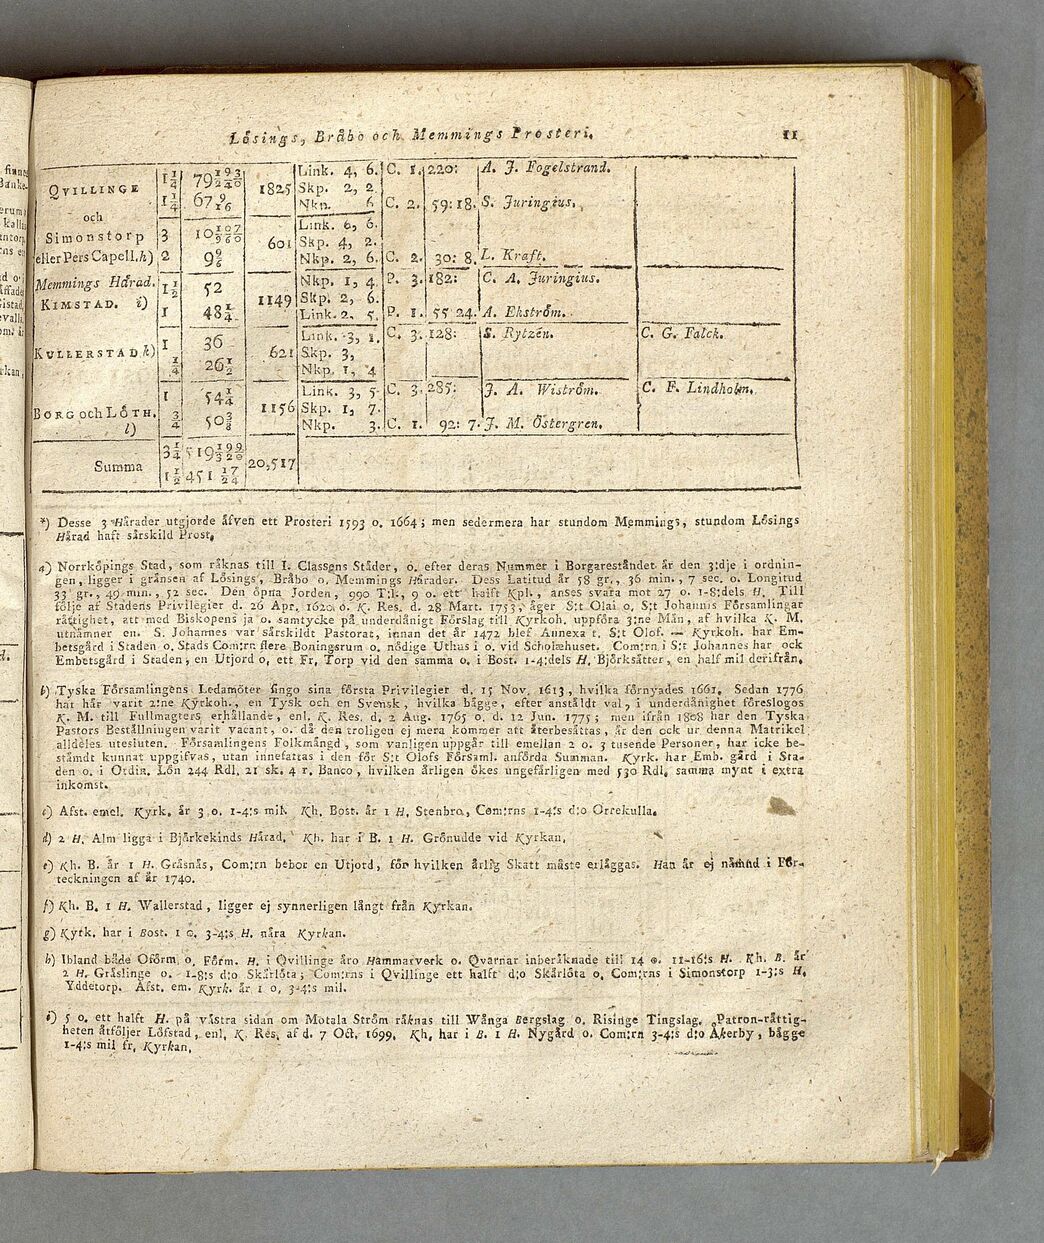 Lösings, Bråbo och Memmings Prosteri. 11
QVILLINGE 1 1/4 79 193/240 1825 Link. 4, 6. C. 1. 220: A. J. Fogelstrand.
1 1/4 67 9/16 Skp. 2, 2
Nkp. 6 C. 2. 59:18. S. Juringius.
och
Simonstorp 3 10 107/960 601 Link. 6, 6.
Skp. 4, 2.
eller Pers Capell. h) 2 9 Nkp. 2, 6. C. 2. 30: 8. L. Kraft.
Memmings Hårad. 1 1/2 52 1149 Nkp. 1, 4 P. 3. 182: C. A. Juringius.
KIMSTAD. i) Skp. 2, 6.
1 48 1/4 Link. 2, 5. P. 1. 55 24. A. Ekström.
KULLERSTAD k) 1 36 621 Link. 3, 1. C. 3. 128: S. Rytzén. C. G. Falck.
Skp. 3,
1/4 26 1/2 Nkp. 1, 4
BORG och LÖTH. 1 54 1/4 1156 Link. 3, 5. C. 3. 285: J. A. Wiström. C. F. Lindholm.
l) 3/4 50 3/8 Skp. 1, 7.
Nkp. 3. C. 1. 92: 7. J. M. Östergren.
Summa 3 1/4 519 199/320 20,517
1 1/2 451 17/24
*) Desse 3 Hårader utgjorde åfven ett Prosteri 1593 o. 1664; men sedermera har stundom Memmings, stundom Lösings
Hårad haft sårskild Prost.
a) Norrköpings Stad, som råknas till I. Classens Ståder, o. efter deras Nummer i Borgareståndet år den 3:dje i ordnin-
gen, ligger i grånsen af Lösings, Bråbo o. Memmings Hårader. Dess Latitud år 58 gr., 36 min., 7 sec. o. Longitud
33 gr., 49 min., 52 sec. Den öpna Jorden, 990 T:l., 9 o. ett halft Kpl., anses svara mot 27 o. 1-8:dels H. Till
följe af Stadens Privilegier d. 26 Apr. 1620 o. K. Res. d. 28 Mart. 1753, åger S:t Olai o. S:t Johannis Församlingar
råttighet, att med Biskopens ja o. samtycke på underdånigt Förslag till Kyrkoh. uppföra 3:ne Mån, af hvilka K. M.
utnåmner en. S. Johannes var sårskildt Pastorat, innan det år 1472 blef Annexa t. S:t Olof. — Kyrkoh. har Em-
betsgård i Staden o. Stads Com:rn flere Boningsrum o. nödige Uthus i o. vid Scholæhuset. Com:rn i S:t Johannes har ock
Embetsgård i Staden, en Utjord o. ett Fr. Torp vid den samma o. i Bost. 1-4:dels H. Björksåtter, en half mil derifrån.
b) Tyska Församlingens Ledamöter fingo sina första Privilegier d. 15 Nov. 1613, hvilka förnyades 1661. Sedan 1776
hat hår varit 2:ne Kyrkoh., en Tysk och en Svensk, hvilka bågge, efter anståldt val, i underdånighet föreslogos
K. M. till Fullmagters erhållande, enl. K. Res. d. 2 Aug. 1765 o. d. 12 Jun. 1775; men ifrån 1808 har den Tyska
Pastors Bestållningen varit vacant, o. då den troligen ej mera kommer att återbesåttas, år den ock ur denna Matrikel
alldeles utesluten. Församlingens Folkmångd, som vanligen uppgår till emellan 2 o. 3 tusende Personer, har icke be-
ståmdt kunnat uppgifvas, utan innefattas i den för S:t Olofs Församl. anförda Summan. Kyrk. har Emb. gård i Sta-
den o. i Ordin. Lön 244 Rdl. 21 sk. 4 r. Banco, hvilken årligen ökes ungefårligen med 530 Rdl. samma mynt i extra
inkomst.
c) Afst. emel. Kyrk. år 3 o. 1-4:s mil. Kh. Bost. år 1 H. Stenbro, Com:rns 1-4:s d:o Orrekulla.
d) 2 H. Alm ligga i Bjårkekinds Hårad. Kh. har i B. 1 H. Grönudde vid Kyrkan.
e) Kh. B. år 1 H. Gråsnås, Com:rn bebor en Utjord, för hvilken årlig Skatt måste erlåggas. Han år ej nåmnd i För-
teckningen af år 1740.
f) Kh. B. 1 H. Wallerstad, ligger ej synnerligen långt från Kyrkan.
g) Kyrk. har i Bost. 1 o. 3-4:s H. nåra Kyrkan.
h) Ibland både Oförm. o. Förm. H. i Qvillinge åro Hammarverk o. Qvarnar inberåknade till 14 o. 11-16:s H. Kh. B. år
2 H. Gråslinge o. 1-8:s d:o Skårlöta; Com:rns i Qvillinge ett halft d:o Skårlöta o. Com:rns i Simonstorp 1-3:s H.
Yddetorp. Afst. em. Kyrk. år 1 o. 3-4:s mil.
i) 5 o. ett halft H. på våstra sidan om Motala Ström råknas till Wånga Bergslag o. Risinge Tingslag. Patron-råttig-
heten åtföljer Löfstad, enl. K. Res. af d. 7 Oct. 1699. Kh. har i B. 1 H. Nygård o. Com:rn 3-4:s d:o Åkerby, bågge
1-4:s mil fr. Kyrkan.